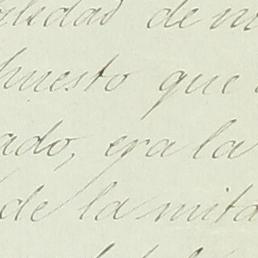 de
puesto que
ado, era la
de la mita